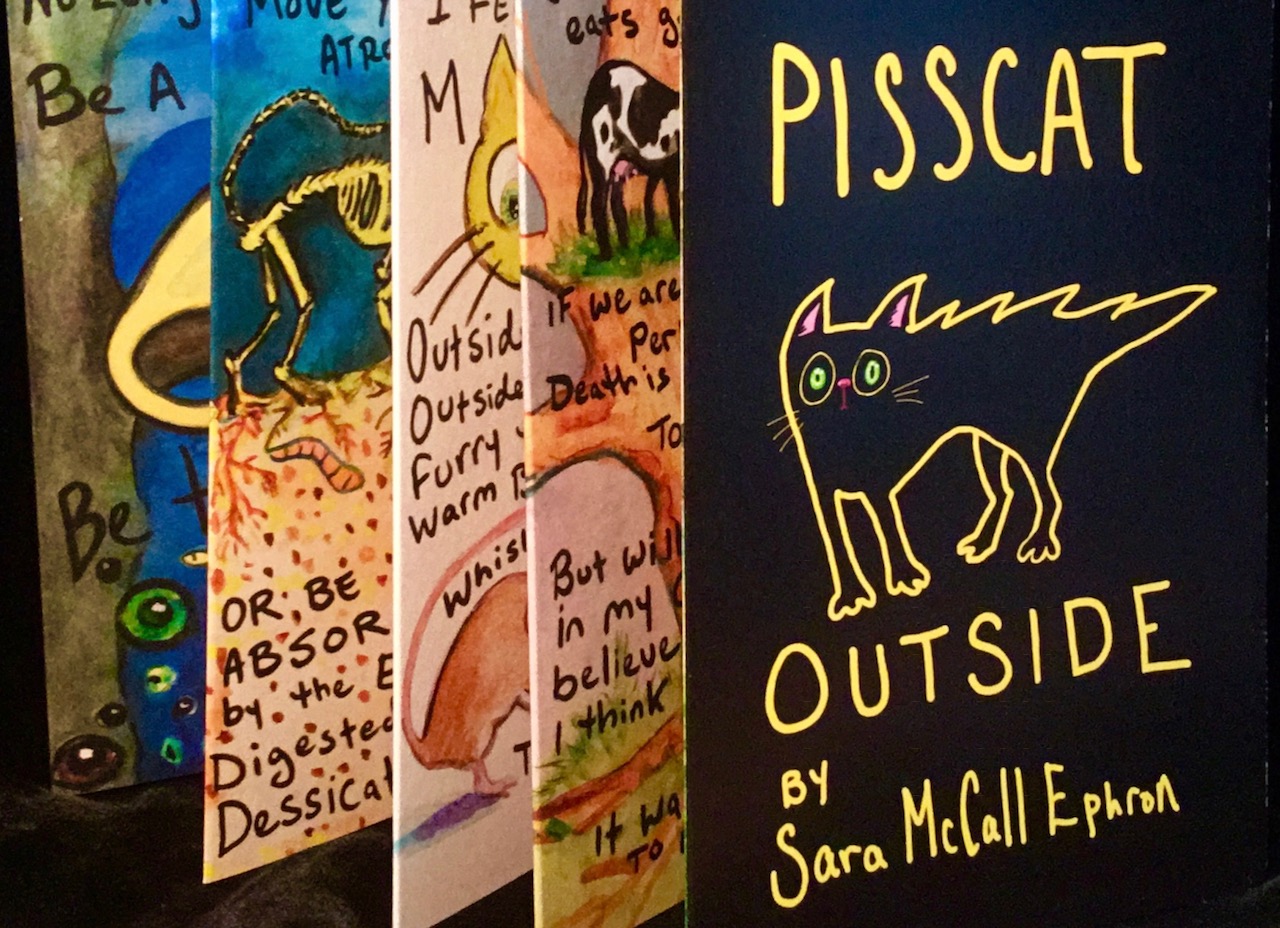 Be A
Be
Move
ATRO
OR BE
ABSOR
by the E
Digested
Dessicat
I FE
M
Outsid
Outside
Furry
Warm B
Whisk
T
eats g
IF we are
Per
Death is
To
But will
in my
believe
I think
It wa
To
PISSCAT
OUTSIDE
BY
Sara McCall Ephron